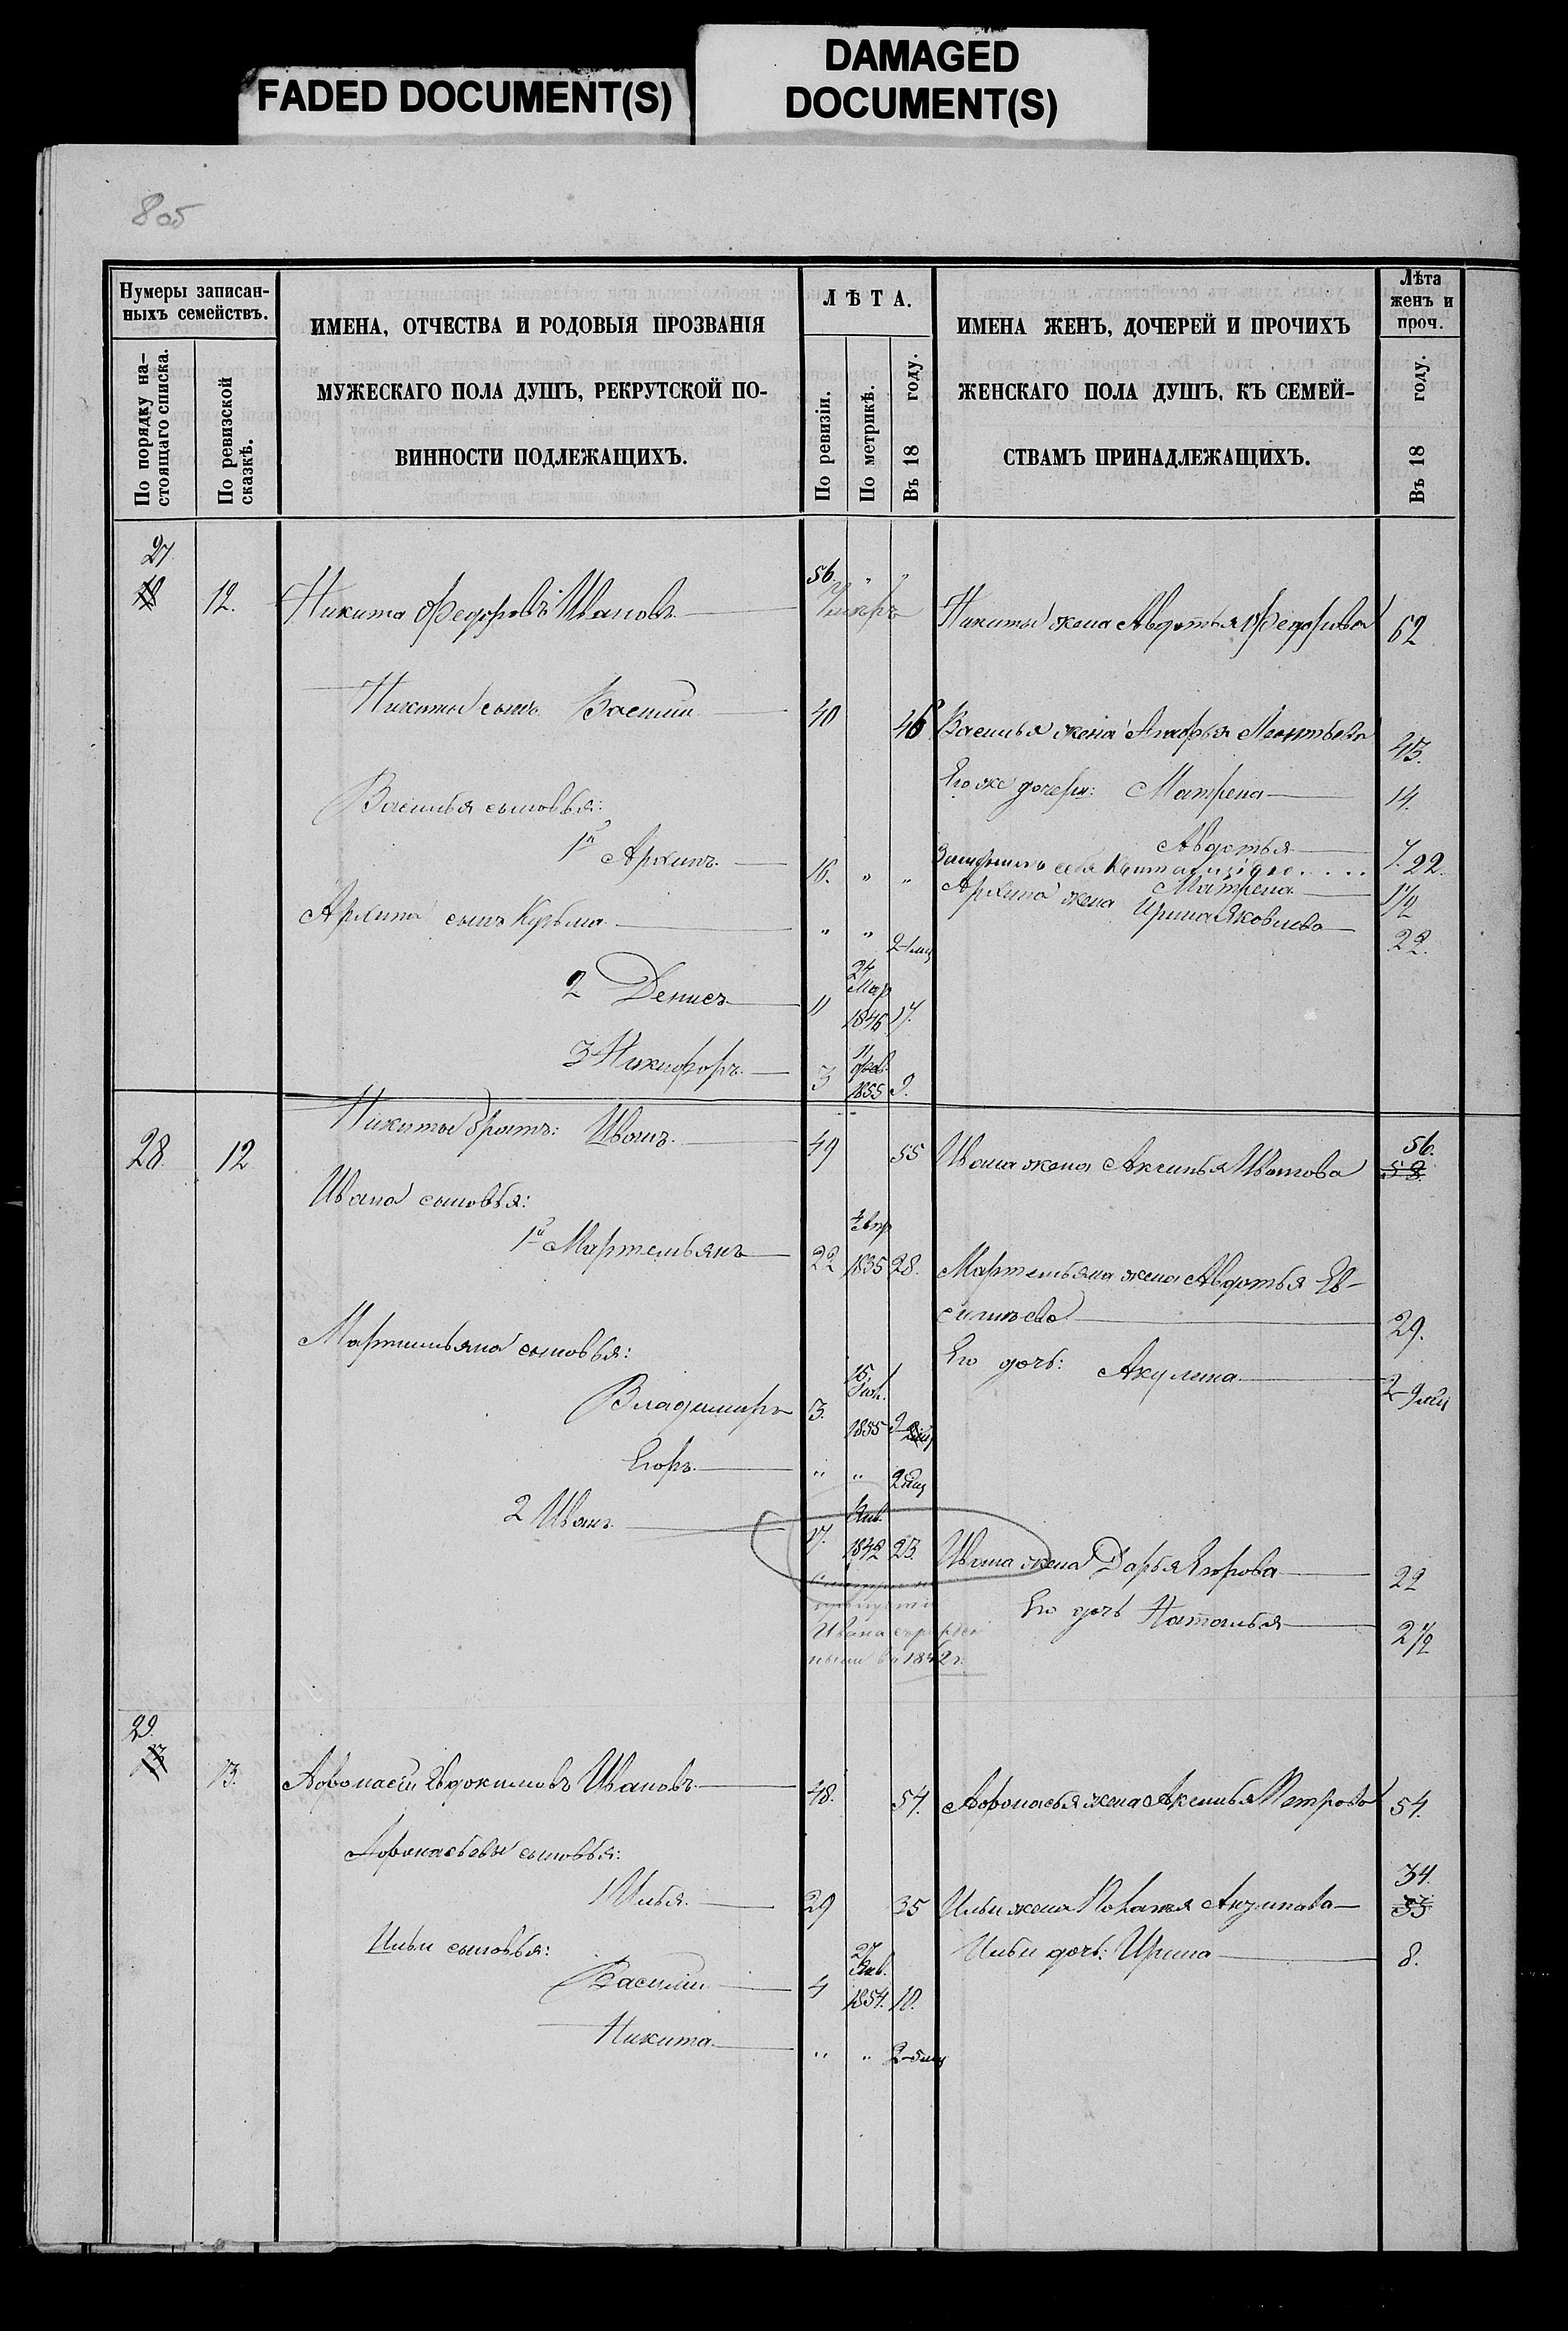 FADED DOCUMENT(S)
DAMAGED
DOCUMENT(S)
805
Нумеры записан-
ныхъ семействъ.
По порядку на-
стоящаго списка.
По ревизской
сказкѣ.
ИМЕНА, ОТЧЕСТВА И РОДОВЫЯ ПРОЗВАНІЯ
МУЖЕСКАГО ПОЛА ДУШЪ, РЕКРУТСКОЙ ПО-
ВИННОСТИ ПОДЛЕЖАЩИХЪ.
ЛѢТА.
По ревизіи.
По метрикѣ.
Въ 18 году.
ИМЕНА ЖЕНЪ, ДОЧЕРЕЙ И ПРОЧИХЪ
ЖЕНСКАГО ПОЛА ДУШЪ, КЪ СЕМЕЙ-
СТВАМЪ ПРИНАДЛЕЖАЩИХЪ.
Лѣта
женъ и
проч.
Въ 18 году.
27.
12. Никита Федоровъ Ивановъ 56. " " Никиты жена Авдотья Федорова 62
Умеръ
Никиты сынъ Василій 40 46 Василья жена Агафья Леонтьева 43.
Его же дочери: Матрена 14.
Василья сыновья:
Авдотья 7.
1й Архипъ. 16. " " 22.
Матрена 1 1/2
Архипа жена Ирина Яковлева 22.
Архипа сынъ Кузьма " "
2 Денисъ 11 24 Мар 1846 17.
3 Никифоръ 3 11 Фев. 1855 9.
28. 12 Никиты братъ: Иванъ. 49 55 Ивана жена Аксинья Иванова 56.
Ивана сыновья:
1й Мартемьянъ 22 4 Апр 1835 28. Мартемьяна жена Авдотья Ев-
сигнѣева 29.
Мартемьяна сыновья:
Его дочь: Акулина 2-9 мѣц
Владимиръ 3. 15 1855 9
Егоръ. " "
2 Иванъ. 17. Янв. 1842 23. Ивана жена Дарья Егорова 22
Его дочь Наталья 2 1/2
Ивана
1842 г.
29.
13. Афонасій Евдокимовъ Ивановъ 48. 54. Афонасья жена Аксинья Петрова 54.
Афонасьевы сыновья:
1 Илья. 29 35 Ильи жена 34.
Ильи сыновья:
Ильи дочь: Ирина 8.
Василій 4 27 Янв. 1854. 10.
Никита " " 2-5 мѣц